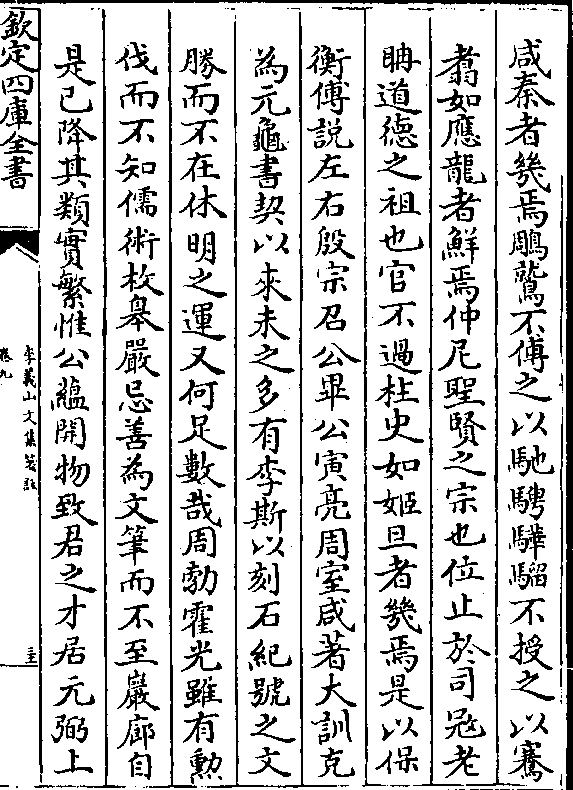 咸秦者幾焉鵰鷲不傅之以馳騁驊騮不授之以騫
翥如應龍者鮮焉仲尼聖賢之宗也位止於司冦老
聃道德之祖也官不過柱史如姬旦者幾焉是以保
衡傅説左右殷宗召公畢公寅亮周室咸著大訓克
為元龜書契以來未之多有李斯以刻石紀號之文
勝而不在休明之運又何足數哉周勃霍光雖有勲
伐而不知儒術枚臯嚴忌善為文筆而不至巖廊自
是已降其類實繁惟公蘊開物致君之才居元弼上
欽定四庫全書
李義山文集箋註
卷九